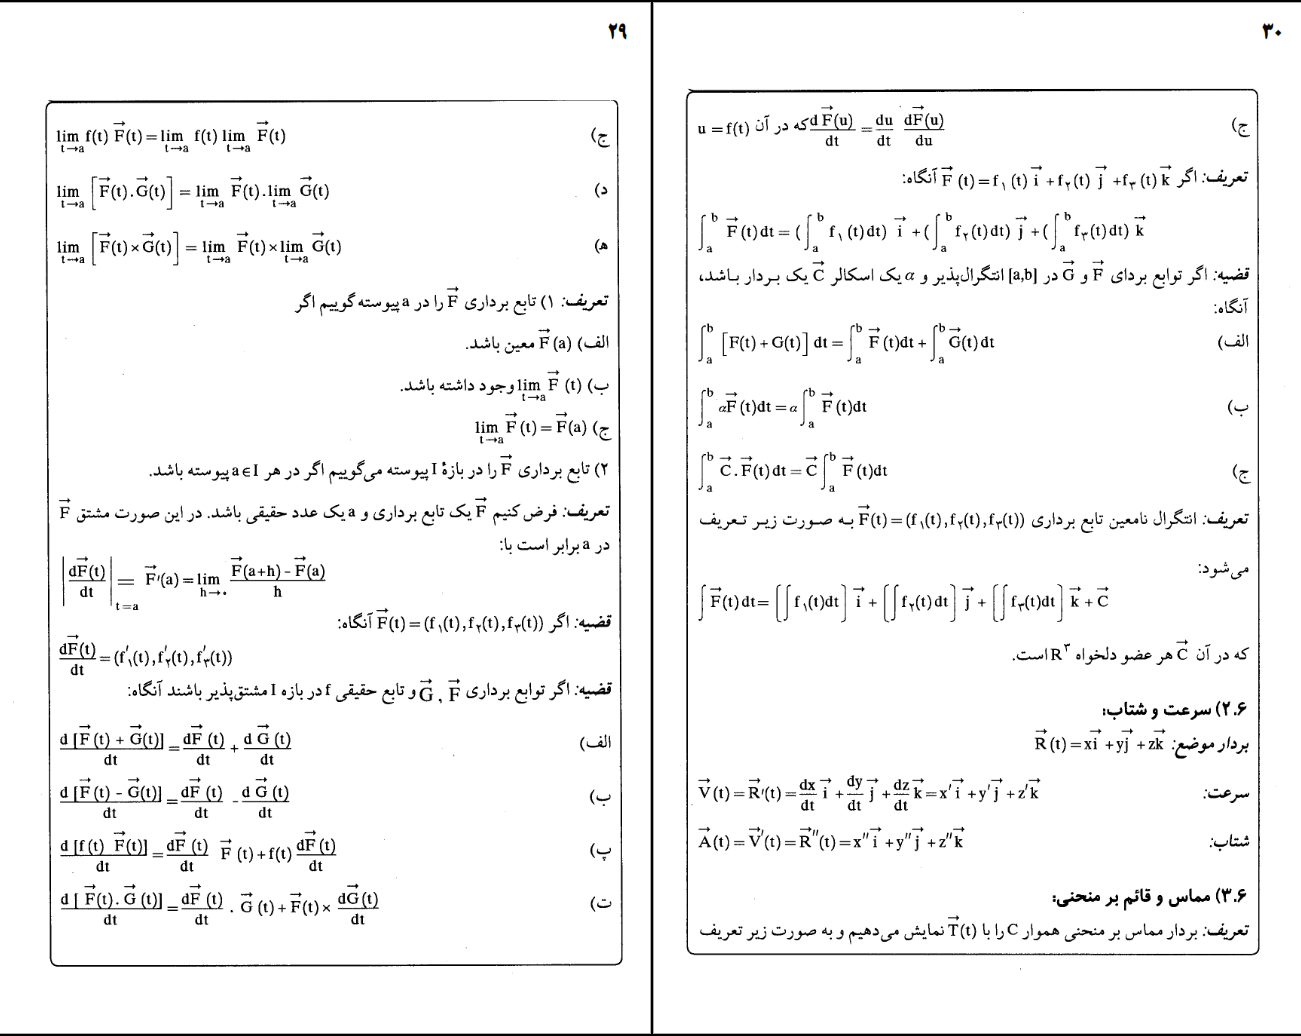 ۲۹
ج) lim_{t→a} f(t) F⃗(t) = lim_{t→a} f(t) lim_{t→a} F⃗(t)
د) lim_{t→a} [F⃗(t).G⃗(t)] = lim_{t→a} F⃗(t).lim_{t→a} G⃗(t)
ه) lim_{t→a} [F⃗(t)×G⃗(t)] = lim_{t→a} F⃗(t)×lim_{t→a} G⃗(t)
تعریف: ۱) تابع برداری F⃗ را در a پیوسته گوییم اگر
الف) F⃗(a) معین باشد.
ب) lim_{t→a} F⃗(t) وجود داشته باشد.
ج) lim_{t→a} F⃗(t) = F⃗(a)
۲) تابع برداری F⃗ را در بازهٔ I پیوسته می‌گوییم اگر در هر a∈I پیوسته باشد.
تعریف: فرض کنیم F⃗ یک تابع برداری و a یک عدد حقیقی باشد. در این صورت مشتق F⃗
در a برابر است با:
|dF⃗(t)/dt|_{t=a} = F⃗′(a) = lim_{h→۰} (F⃗(a+h) − F⃗(a))/h
قضیه: اگر F⃗(t) = (f۱(t), f۲(t), f۳(t)) آنگاه:
dF⃗(t)/dt = (f′۱(t), f′۲(t), f′۳(t))
قضیه: اگر توابع برداری F⃗ , G⃗ و تابع حقیقی f در بازه I مشتق‌پذیر باشند آنگاه:
الف) d[F⃗(t) + G⃗(t)]/dt = dF⃗(t)/dt + dG⃗(t)/dt
ب) d[F⃗(t) - G⃗(t)]/dt = dF⃗(t)/dt - dG⃗(t)/dt
پ) d[f(t) F⃗(t)]/dt = dF⃗(t)/dt F⃗(t) + f(t) dF⃗(t)/dt
ت) d[F⃗(t).G⃗(t)]/dt = dF⃗(t)/dt . G⃗(t) + F⃗(t) × dG⃗(t)/dt
۳۰
ج) dF⃗(u)/dt = du/dt dF⃗(u)/du که در آن u = f(t)
تعریف: اگر F⃗(t) = f۱(t) i⃗ + f۲(t) j⃗ + f۳(t) k⃗ آنگاه:
∫_a^b F⃗(t)dt = (∫_a^b f۱(t)dt) i⃗ + (∫_a^b f۲(t)dt) j⃗ + (∫_a^b f۳(t)dt) k⃗
قضیه: اگر توابع بردای F⃗ و G⃗ در [a,b] انتگرال‌پذیر و α یک اسکالر C⃗ یک بردار باشد،
آنگاه:
الف) ∫_a^b [F(t) + G(t)] dt = ∫_a^b F⃗(t)dt + ∫_a^b G⃗(t)dt
ب) ∫_a^b αF⃗(t)dt = α ∫_a^b F⃗(t)dt
ج) ∫_a^b C⃗.F⃗(t)dt = C⃗ ∫_a^b F⃗(t)dt
تعریف: انتگرال نامعین تابع برداری F⃗(t) = (f۱(t), f۲(t), f۳(t)) به صورت زیر تعریف
می‌شود:
∫F⃗(t)dt = [∫f۱(t)dt] i⃗ + [∫f۲(t)dt] j⃗ + [∫f۳(t)dt] k⃗ + C⃗
که در آن C⃗ هر عضو دلخواه R³ است.
۲.۶) سرعت و شتاب:
بردار موضع: R⃗(t) = xi⃗ + yj⃗ + zk⃗
سرعت: V⃗(t) = R⃗′(t) = dx/dt i⃗ + dy/dt j⃗ + dz/dt k⃗ = x′i⃗ + y′j⃗ + z′k⃗
شتاب: A⃗(t) = V⃗′(t) = R⃗″(t) = x″i⃗ + y″j⃗ + z″k⃗
۳.۶) مماس و قائم بر منحنی:
تعریف: بردار مماس بر منحنی هموار C را با T⃗(t) نمایش می‌دهیم و به صورت زیر تعریف